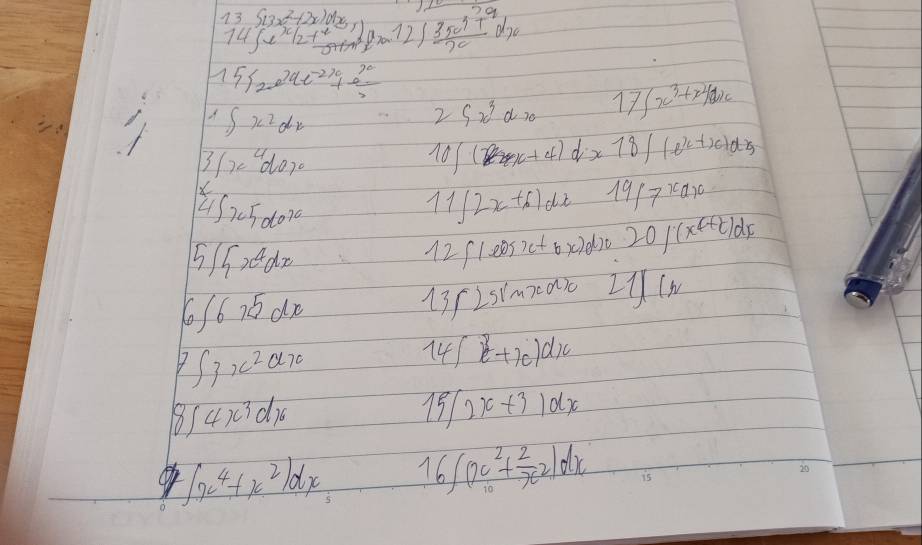 13 ∫(3x²+2x)dx
14 ∫e^x(2+
12 ∫
dx
15 ∫
1 ∫x²dx
2 ∫x³dx
17 ∫(x³+x⁴)dx
3 ∫x⁴dx
10 ∫(x+4)dx
18 ∫(e^x+x)dx
4 ∫x5dx
11 ∫2x+6)dx
19 ∫7^x dx
5 ∫5x⁴dx
12 ∫(cosx+6x)dx
20 ∫(x⁴+x)dx
6 ∫6x5dx
13 ∫2sinxdx
21 ∫(
7 ∫3x²dx
14 ∫(+x)dx
8 ∫4x³dx
15 ∫2x+3)dx
9 ∫x⁴+x²)dx
16 ∫(x²+2/x²)dx
0 5 10 15 20